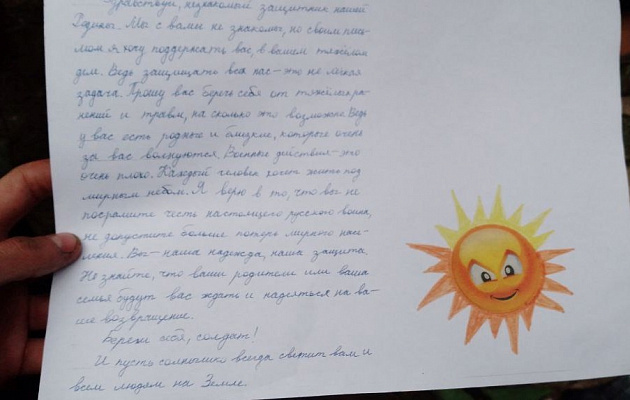 Здравствуй, незнакомый защитник нашей
Родины. Мы с вами не знакомы, но своим пись-
мом я хочу поддержать вас, в вашем тяжёлом
деле. Ведь защищать всех нас - это не лёгкая
задача. Прошу вас беречь себя от тяжёлых ра-
нений и травм, на сколько это возможно. Ведь
у вас есть родные и близкие, которые очень
за вас волнуются. Военные действия - это
очень плохо. Каждый человек хочет жить под
мирным небом. Я верю в то, что вы не
посрамите честь настоящего русского воина,
не допустите больше потерь мирного насе-
ления. Вы - наша надежда, наша защита.
Но знайте, что ваши родители или ваша
семья будут вас ждать и надеяться на ва-
ше возвращение.
Береги себя, солдат!
И пусть солнышко всегда светит вам и
всем людям на Земле.